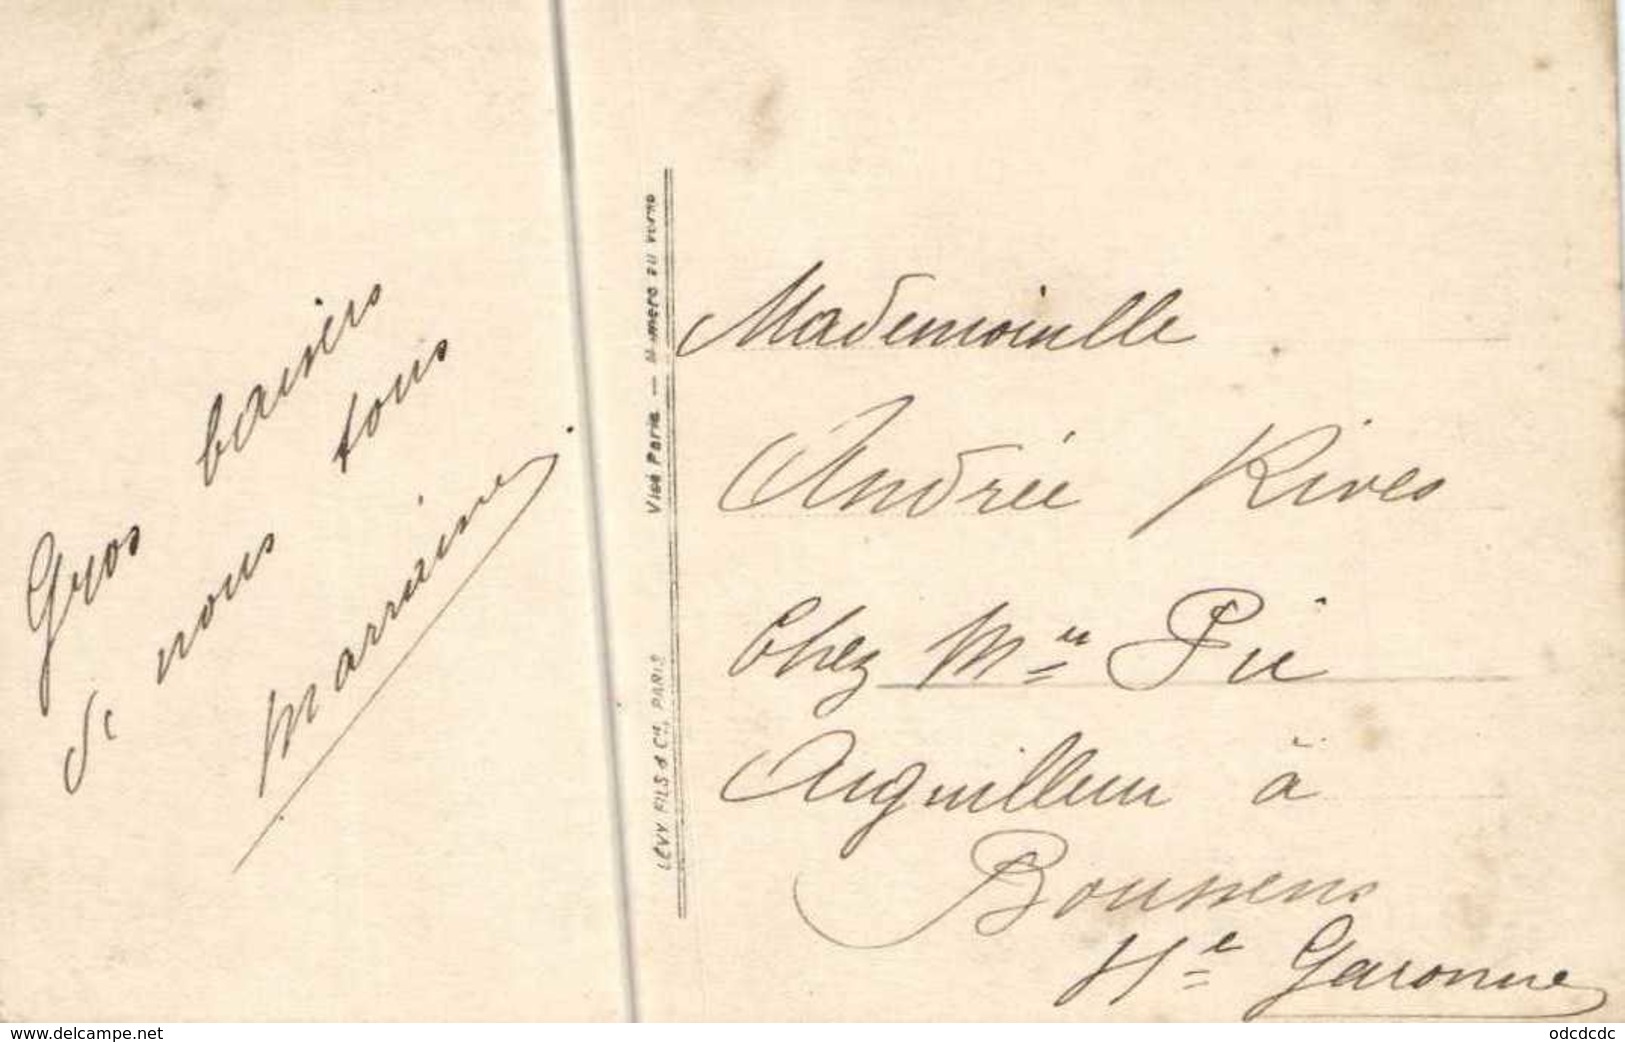 Gros baisers
de nous tous
Marraine
Visé Paris — Numéro au verso
LÉVY FILS & Cie, PARIS
Mademoiselle
Andrée Rives
Chez Mr Pié
Aiguilleur à
Boussens
Hte Garonne
www.delcampe.net
odcdcdc